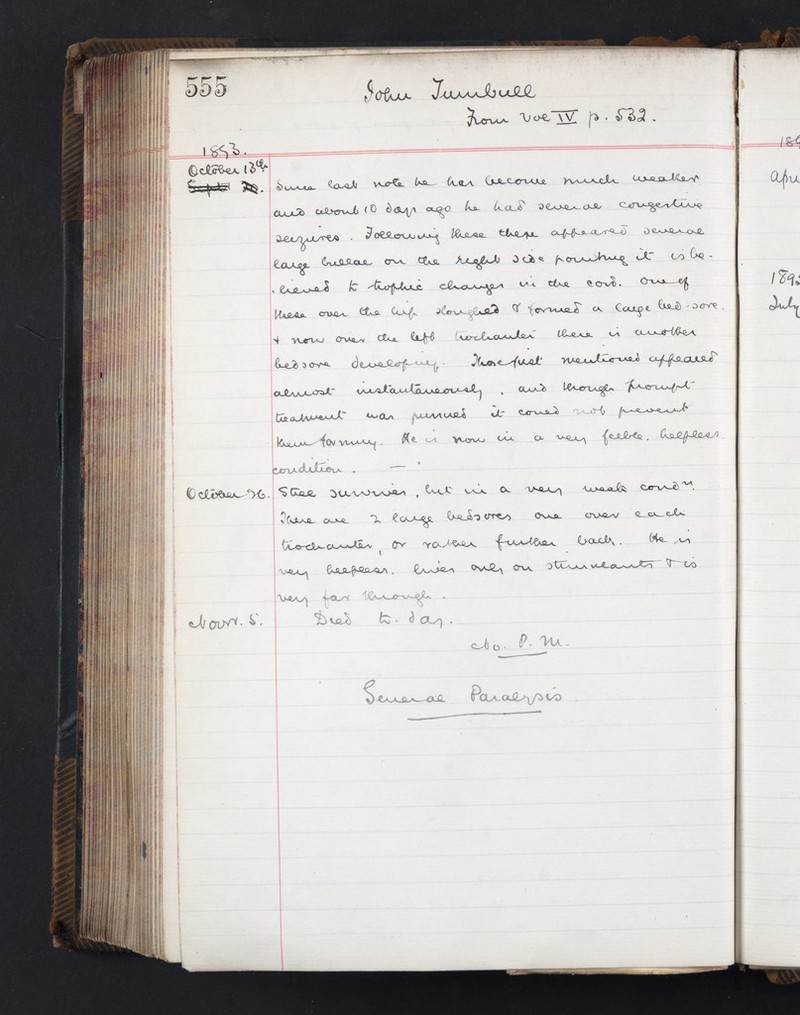 555
John Turnbull
From Vol IV p. 532.
1893.
October 13th.
Since last note he has become much weaker
and about 10 days ago he had several congestive
seizures. Following these there appeared several
large bullae on the right side pointing it is be-
-lieved to trophic changes in the cord. One of
these over the hip sloughed & formed a large bed-sore.
& now over the left trochanter there is another
bedsore developing. Those just mentioned appeared
almost instantaneously, and though prompt
treatment was pursued it could not prevent
them forming. He is now in a very feeble, helpless
condition. —
October 26. Still survives, but in a very weak condn.
There are 2 large bedsores one over each
trochanter, or rather further back. He is
very helpless. Lives only on stimulants & is
very far through.
Novr. 5. Died to-day.
No. P. M.
General Paralysis
189
Apri
1893
July